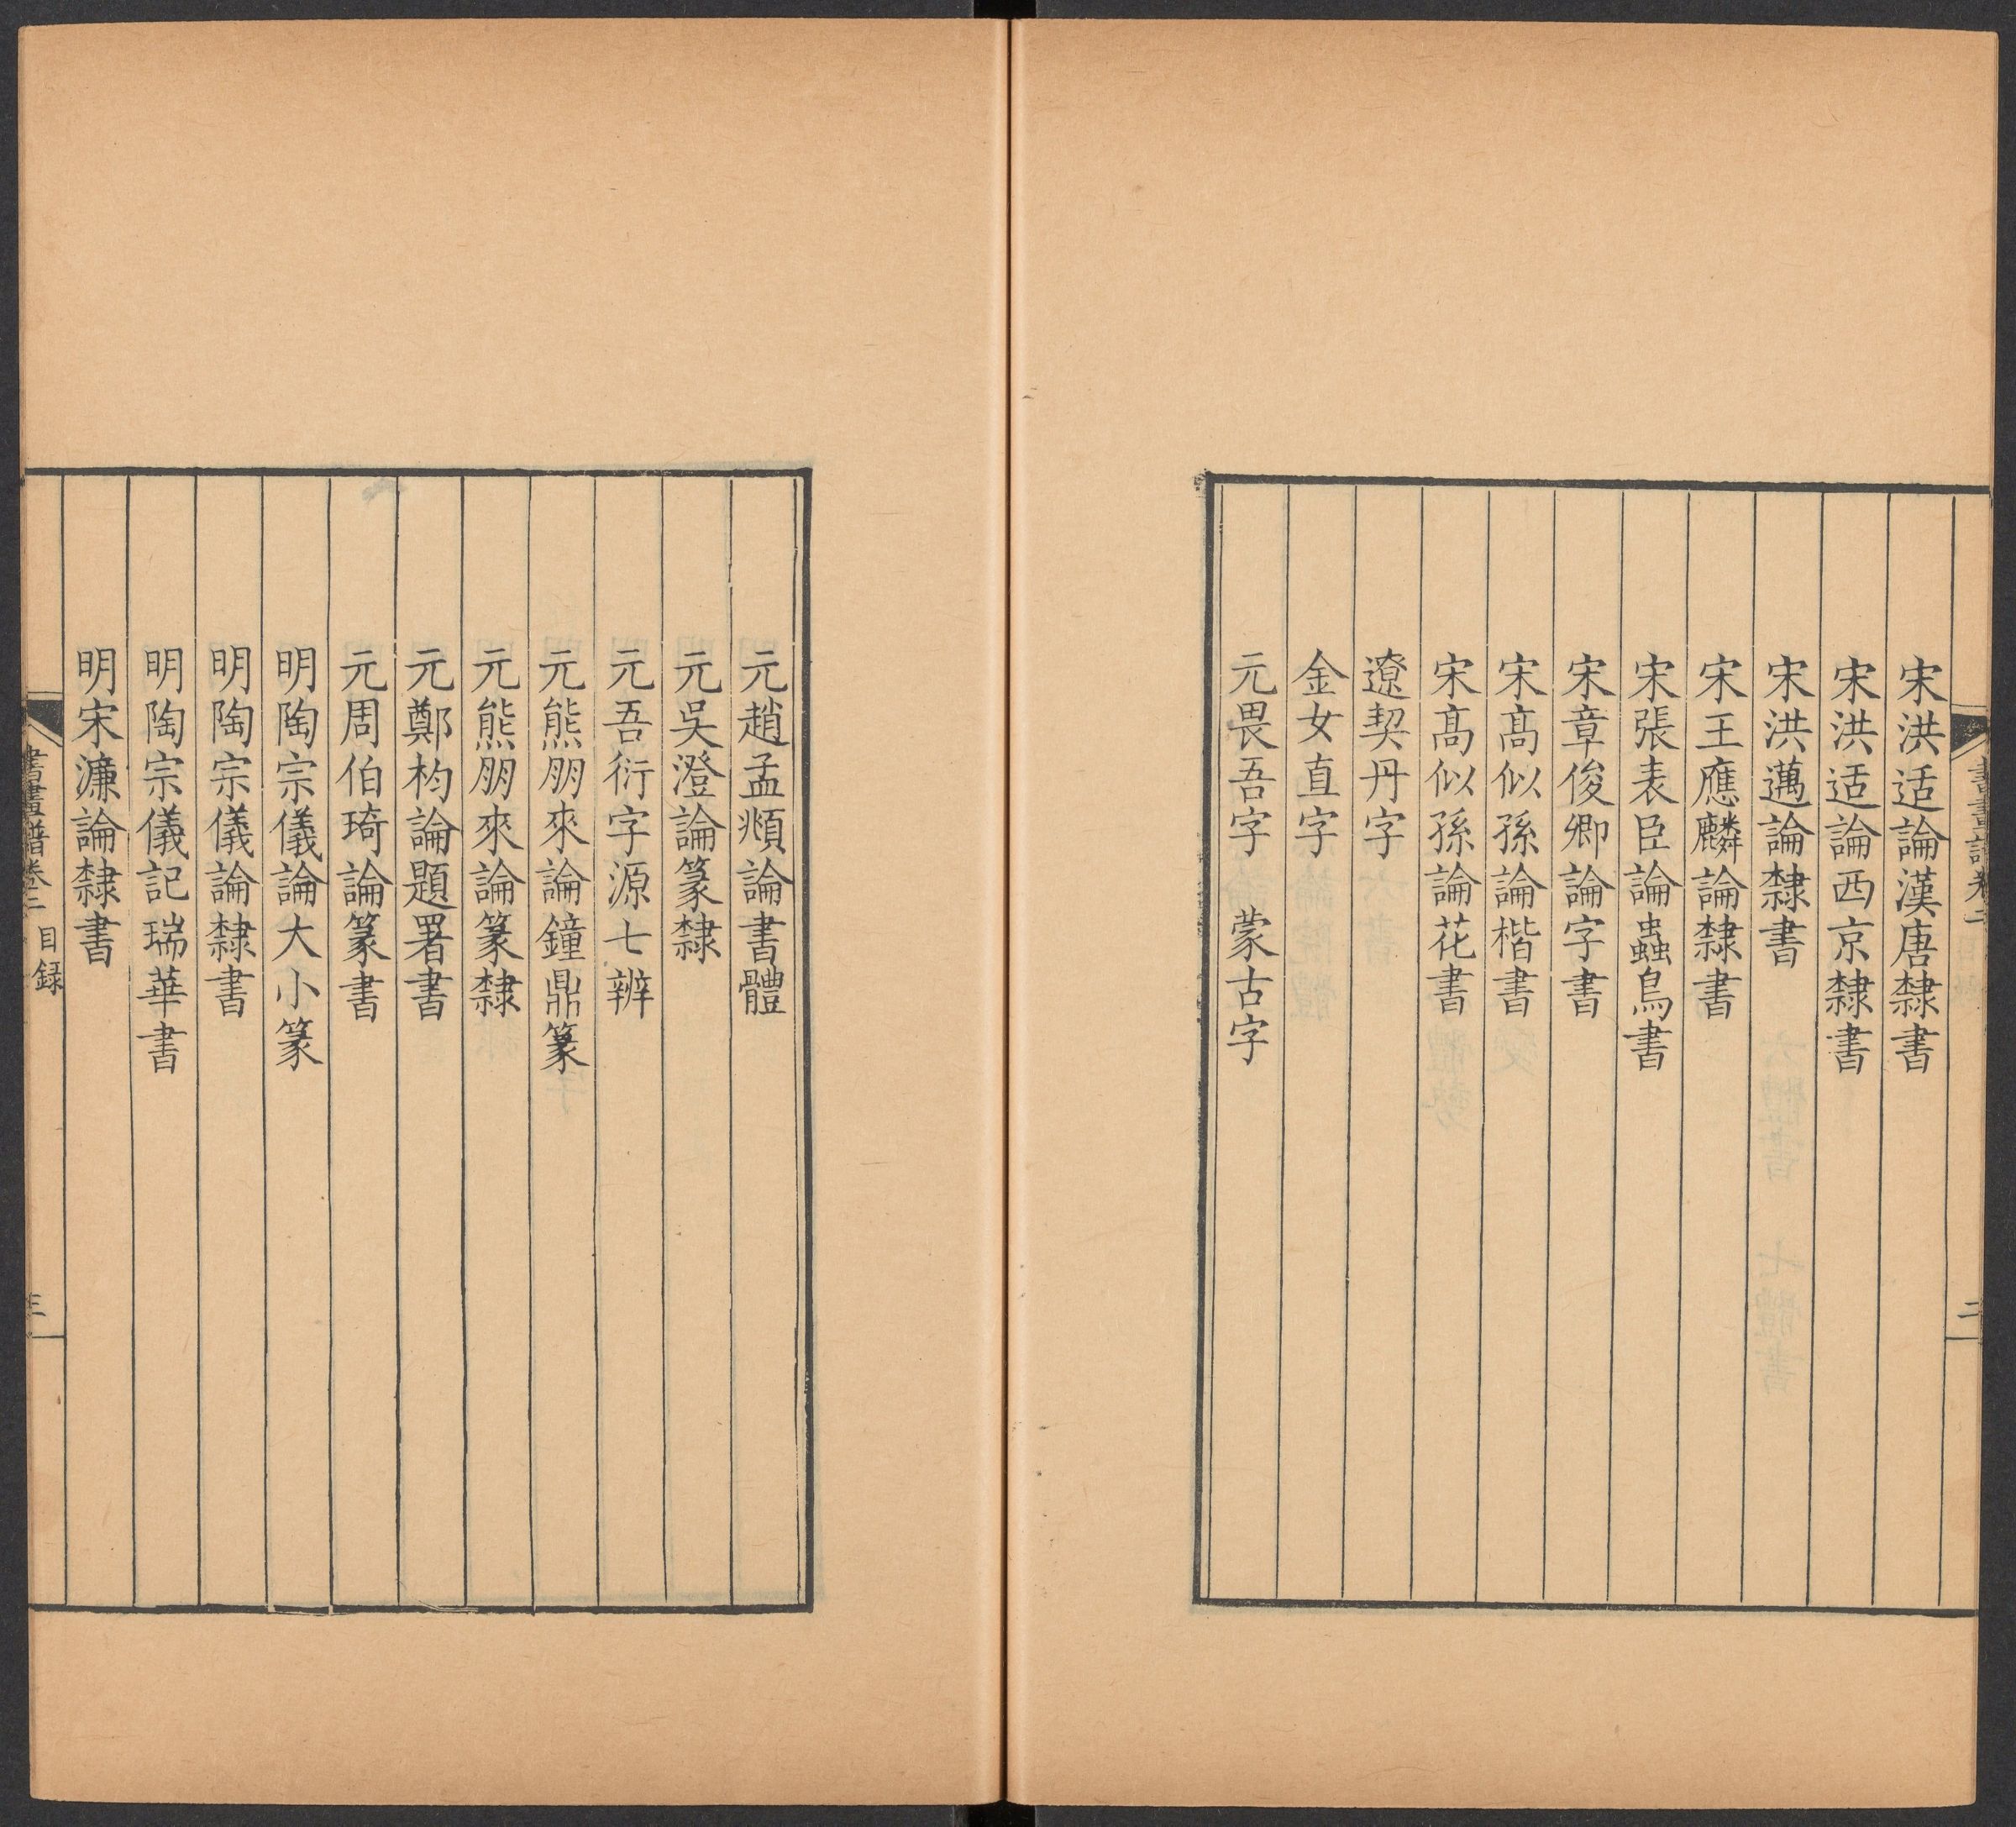 宋洪适論漢唐隸書
宋洪适論西京隸書
宋洪邁論隸書
宋王應麟論隸書
宋張表臣論蟲鳥書
宋章俊卿論字書
宋髙似孫論楷書
宋髙似孫論花書
遼契丹字
金女直字
元畏吾字 蒙古字
元趙孟頫論書體
元吳澄論篆隸
元吾衍字源七辨
元熊朋來論鐘鼎篆
元熊朋來論篆隸
元鄭杓論題署書
元周伯琦論篆書
明陶宗儀論大小篆
明陶宗儀論隸書
明陶宗儀記瑞華書
明宋濂論隸書
書畫譜卷二 目録
三